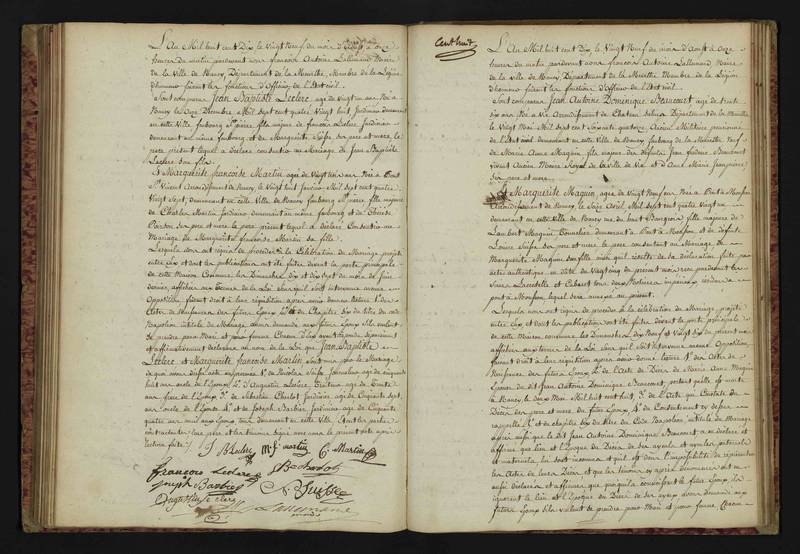 L'An Mil huit cent Dix, le Vingt Neuf du mois d'Août à onze
heures du matin pardevant nous françois Antoine Lallemand Maire
de la Ville de Nancy, Département de la Meurthe, Membre de la Légion
d'honneur faisant les fonctions d'Officier de l'Etat civil.
Sont comparus Jean Baptiste Leclerc, agé de vingt un ans Né à
Nancy le Onze Décembre Mil Sept cent quatre Vingt huit Jardinier demeurant
en cette Ville faubourg St pierre, fils majeur de françois Leclerc Jardinier
demeurant au même faubourg et de Marguerite Suisse ses pere et mere, le
pere présent lequel a déclaré consentir au Mariage de Jean Baptiste
Leclerc son fils
Et Marguerite françoise Martin, agée de Vingt trois ans Née à Pont
St Vincent Arrondissement de Nancy, le Vingt huit Janvier Mil Sept cent quatre
Vingt Sept, demeurant en cette Ville de Nancy faubourg St pierre, fille majeure
de Charles Martin Jardinier demeurant au même faubourg et de
ses pere et mere, le pere présent lequel a déclaré Consentir au
Mariage de Marguerite françoise Martin sa fille.
Lesquels nous ont requis de procéder à la Célébration du Mariage projetté
entre eux et dont les publications ont été faites devant la porte principale
de cette Maison Commune les Dimanches dix et dix sept du mois de Juin
dernier, affichées aux termes de la Loi sans qu'il soit intervenu aucune
Opposition, faisant droit à leur réquisition après avoir donné lecture 1° des
Actes de Naissances des futurs Epoux 2° du Chapitre Six du titre du code
Napoléon intitulé du Mariage avons demandé aux futurs Epoux s'ils veulent
se prendre pour Mari et pour femme, Chacun d'eux ayant répondu séparément
et affirmativement déclarons au nom de la Loi que Jean Baptiste
Leclerc et Marguerite françoise Martin sont unis par le Mariage
de quoi avons dressé acte en présence 1° de Nicolas Suisse Journalier agé de cinquante
huit ans oncle de l'Epoux, 2° d'Augustin Leclerc, agé de Trente
ans frere de l'Epoux 3° de Sébastien Charlot Jardinier, agé de Cinquante Sept
ans oncle de l'Epouse 4° et de Joseph Barbier, Jardinier agé de Cinquante
quatre ans, ami aux Epoux tous demeurant en cette Ville. Et ont les parties
contractantes, leurs pere et les témoins signé avec nous le présent acte après
lecture faite.
J B Leclerc M. f. martin C. Martin
françois Leclerc
Joseph Barbier
N. Suisse
Lallemand
Cent huit
L'An Mil huit cent Dix, le Vingt Neuf du mois d'Août à Onze
heures du matin pardevant nous françois Antoine Lallemand Maire
de la ville de Nancy, Département de la Meurthe, Membre de la Légion
d'honneur faisant les fonctions d'Officier de l'Etat civil.
Sont comparus Jean Antoine Dominique Beaucourt agé de trente
six ans Né à Vic Arrondissement de Chateau Salins Département de la Meurthe
le Vingt Mai Mil Sept cent Soixante quatorze, Ancien Militaire
demeurant en cette Ville de Nancy faubourg de la Meurthe Veuf
de Marie Anne Maquin, fils majeur des défunts Jean Beaucourt
vivant Ancien Notaire Royal de la Ville de Vic et d'Anne Marie
ses pere et mere
Et Marguerite Maquin, agée de Vingt Neuf ans Née à Pont à Mousson
Arrondissement de Nancy, le Seize Avril Mil Sept cent quatre Vingt un
demeurant en cette Ville de Nancy rue du haut Bourgeois fille majeure de
Laurent Maquin Tonnelier demeurant à Pont à Mousson et de défunte
Louise Suisse ses pere et mere, le pere consentant au Mariage de
Marguerite Maquin sa fille ainsi qu'il résulte de sa déclaration faite par
acte authentique en date du Vingt cinq du présent mois reçu pardevant les
Sieurs Lacretelle et Cabaret tous deux Notaires impériaux résidens à
pont à Mousson lequel sera annexé au présent.
Lesquels nous ont requis de procéder à la célébration du Mariage projetté
entre eux et dont les publications ont été faites devant la porte principale
de cette Maison commune les Dimanches Dix Neuf et Vingt Six du présent mois
affichées aux termes de la Loi sans qu'il soit intervenu aucune Opposition,
faisant droit à leur réquisition après avoir donné lecture 1° des Actes de
Naissances des futurs Epoux 2° de l'Acte de Décès de Marie Anne Maquin
Epouse du dit Jean Antoine Dominique Beaucourt, portant qu'elle est morte
à Nancy, le deux Mai Mil huit cent huit, 3° de l'Acte qui Constate le
Décès des pere et mere du futur Epoux 4° du Consentement cy dessus
rappellé 5° et du chapitre Six du titre du Code Napoléon intitulé du Mariage
après aussi que le dit Jean Antoine Dominique Beaucourt a déclaré et
affirmé que le lieu et l'Epoque du Décès de ses ayeuls et ayeules paternels
et maternels lui sont inconnus et qu'il est dans l'impossibilité de représenter
les Actes de leurs Décès et que les témoins cy après dénommés ont
aussi déclaré et affirmé que quoiqu'ils connoissent le futur Epoux, ils
ignorent le lieu et l'Epoque du Décès de ses ayeux avons demandé aux
futurs Epoux s'ils veulent se prendre pour Mari et pour femme, Chacun